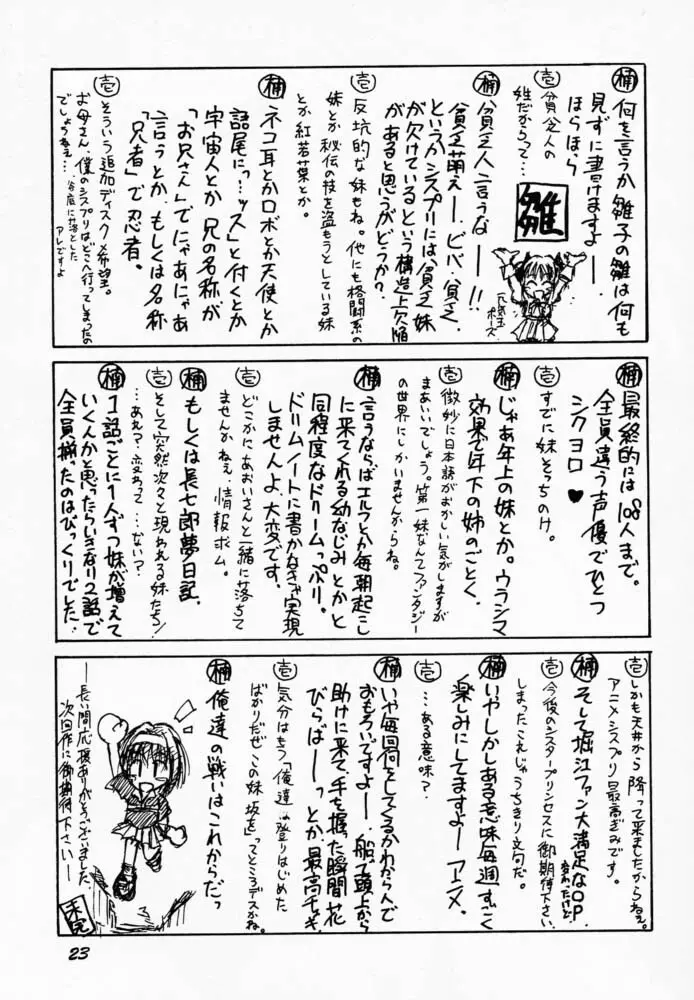 楠 何を言うか雛子の雛は何も
見ずに書けますよー
ほらほら
壱 貧乏人の
姓だからって…
雛
元気玉
ポーズ
楠 貧乏人言うなーー!!
貧乏萌えー、ビバ、貧乏、
というかシスプリには、貧乏妹
が欠けているという構造上欠陥
があると思うがどうか?
壱 反抗的な妹もね。他にも格闘系の
妹とか秘伝の技を盗もうとしている妹
とか紅若葉とか。
楠 ネコ耳とかロボとか天使とか
語尾に「…ッス」と付くとか
宇宙人とか兄の名称が
「お兄さん」でにゃあにゃあ
言うとか、もしくは名称
「兄者」で忍者。
壱 そういう追加ディスク×希望。
お母さん、僕のシスプリはどこへ行ってしまったの
でしょうねえ…
谷底に落とした
アレですよ
楠 最終的には108人まで。
全員違う声優でひとつ
シクヨロ♥
壱 すでに妹そっちのけ。
楠 じゃあ年上の妹とか。ウラシマ
効果で年下の姉のごとく、
壱 微妙に日本語がおかしい気がしますが
まあいいでしょう。第一妹なんてファンタジー
の世界にしかいませんからね。
楠 言うならばエルフとか毎朝起こし
に来てくれる幼なじみとかと
同程度なドリームっぷり。
ドリムノートに書かなきゃ実現
しませんよ、大変です。
壱 どこかに、あおいさんと一緒に落ちて
ませんかねえ、情報求ム。
楠 もしくは長七郎夢日記、
壱 そして突然次々と現われる妹たち!
…あれ?変わって…ない?
楠 1話ごとに1人ずつ妹が増えて
いくんかと思ったらいきなり2話で
全員揃ったのはびっくりでした!
壱 しかも天井から降って来ましたからねえ。
アニメシスプリ最高ぎみです。
楠 そして堀江ファン大満足なOP、
変わったけど
壱 今後のシスタープリンセスに御期待下さい、
しまったこれじゃうちきり文句だ。
楠 いやしかしある意味毎週すごく
楽しみにしてますよーアニメ。
壱 …ある意味?
楠 いや毎回何をしてくるかわからんで
おもろいですよー、船、頭上から
助けに来て、手を握った瞬間花
びらばーーっとか最高チャキ
壱 気分はもう「俺達は登りはじめた
ばかりだぜこの妹坂を」ってところデスかね。
楠 俺達の戦いはこれからだっ
―長い間応援ありがとうございました
次回作に御期待下さい―
未完
23